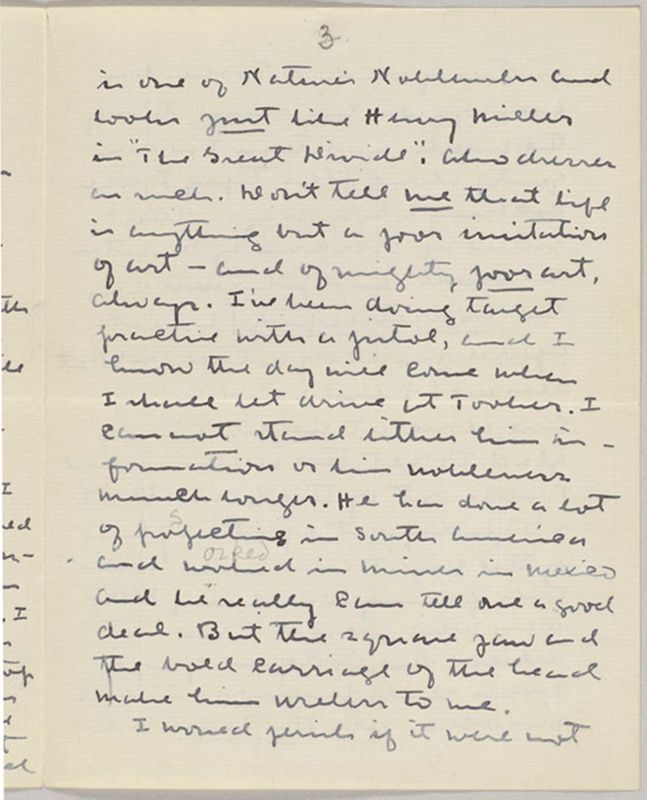 3
is one of Nature's Noblemen and
looks just like Henry Miller
in "The Great Divide". Also dresses
as such. Don't tell me that life
is anything but a poor imitation
of art — and of mighty poor art,
always. I've been doing target
practice with a pistol, and I
know the day will come when
I shall let drive at Tooker. I
cannot stand either his in-
formation or his nobleness
much longer. He has done a lot
of projecting in South America
s
and worked in mines in Mexico
orked
and he really can tell one a good
deal. But the square jaw and
the bold carriage of the head
make him useless to me.
I would perish if it were not